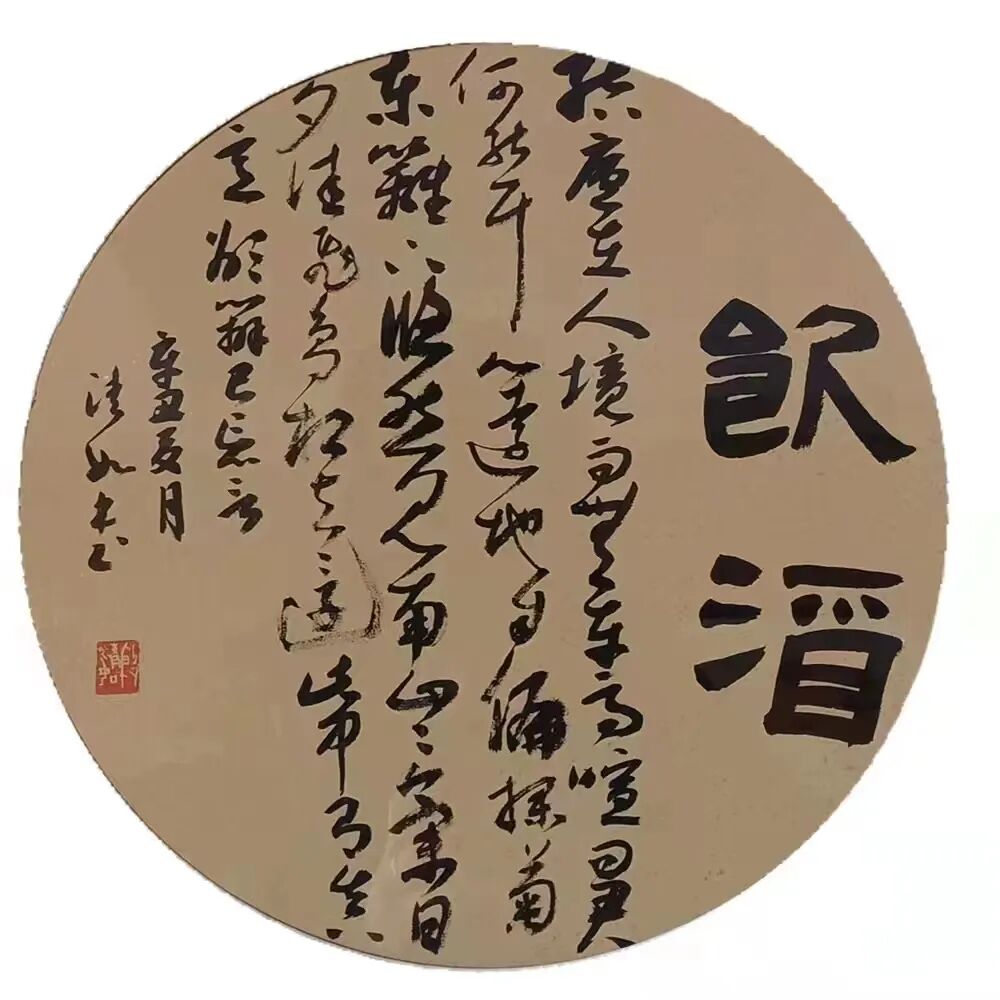 飲酒
結廬在人境而無車馬喧問君
何能爾心遠地自偏採菊
東籬下悠然見南山々氣日
夕佳飛鳥相與還此中有真
意欲辯已忘言
辛丑夏月
清如書